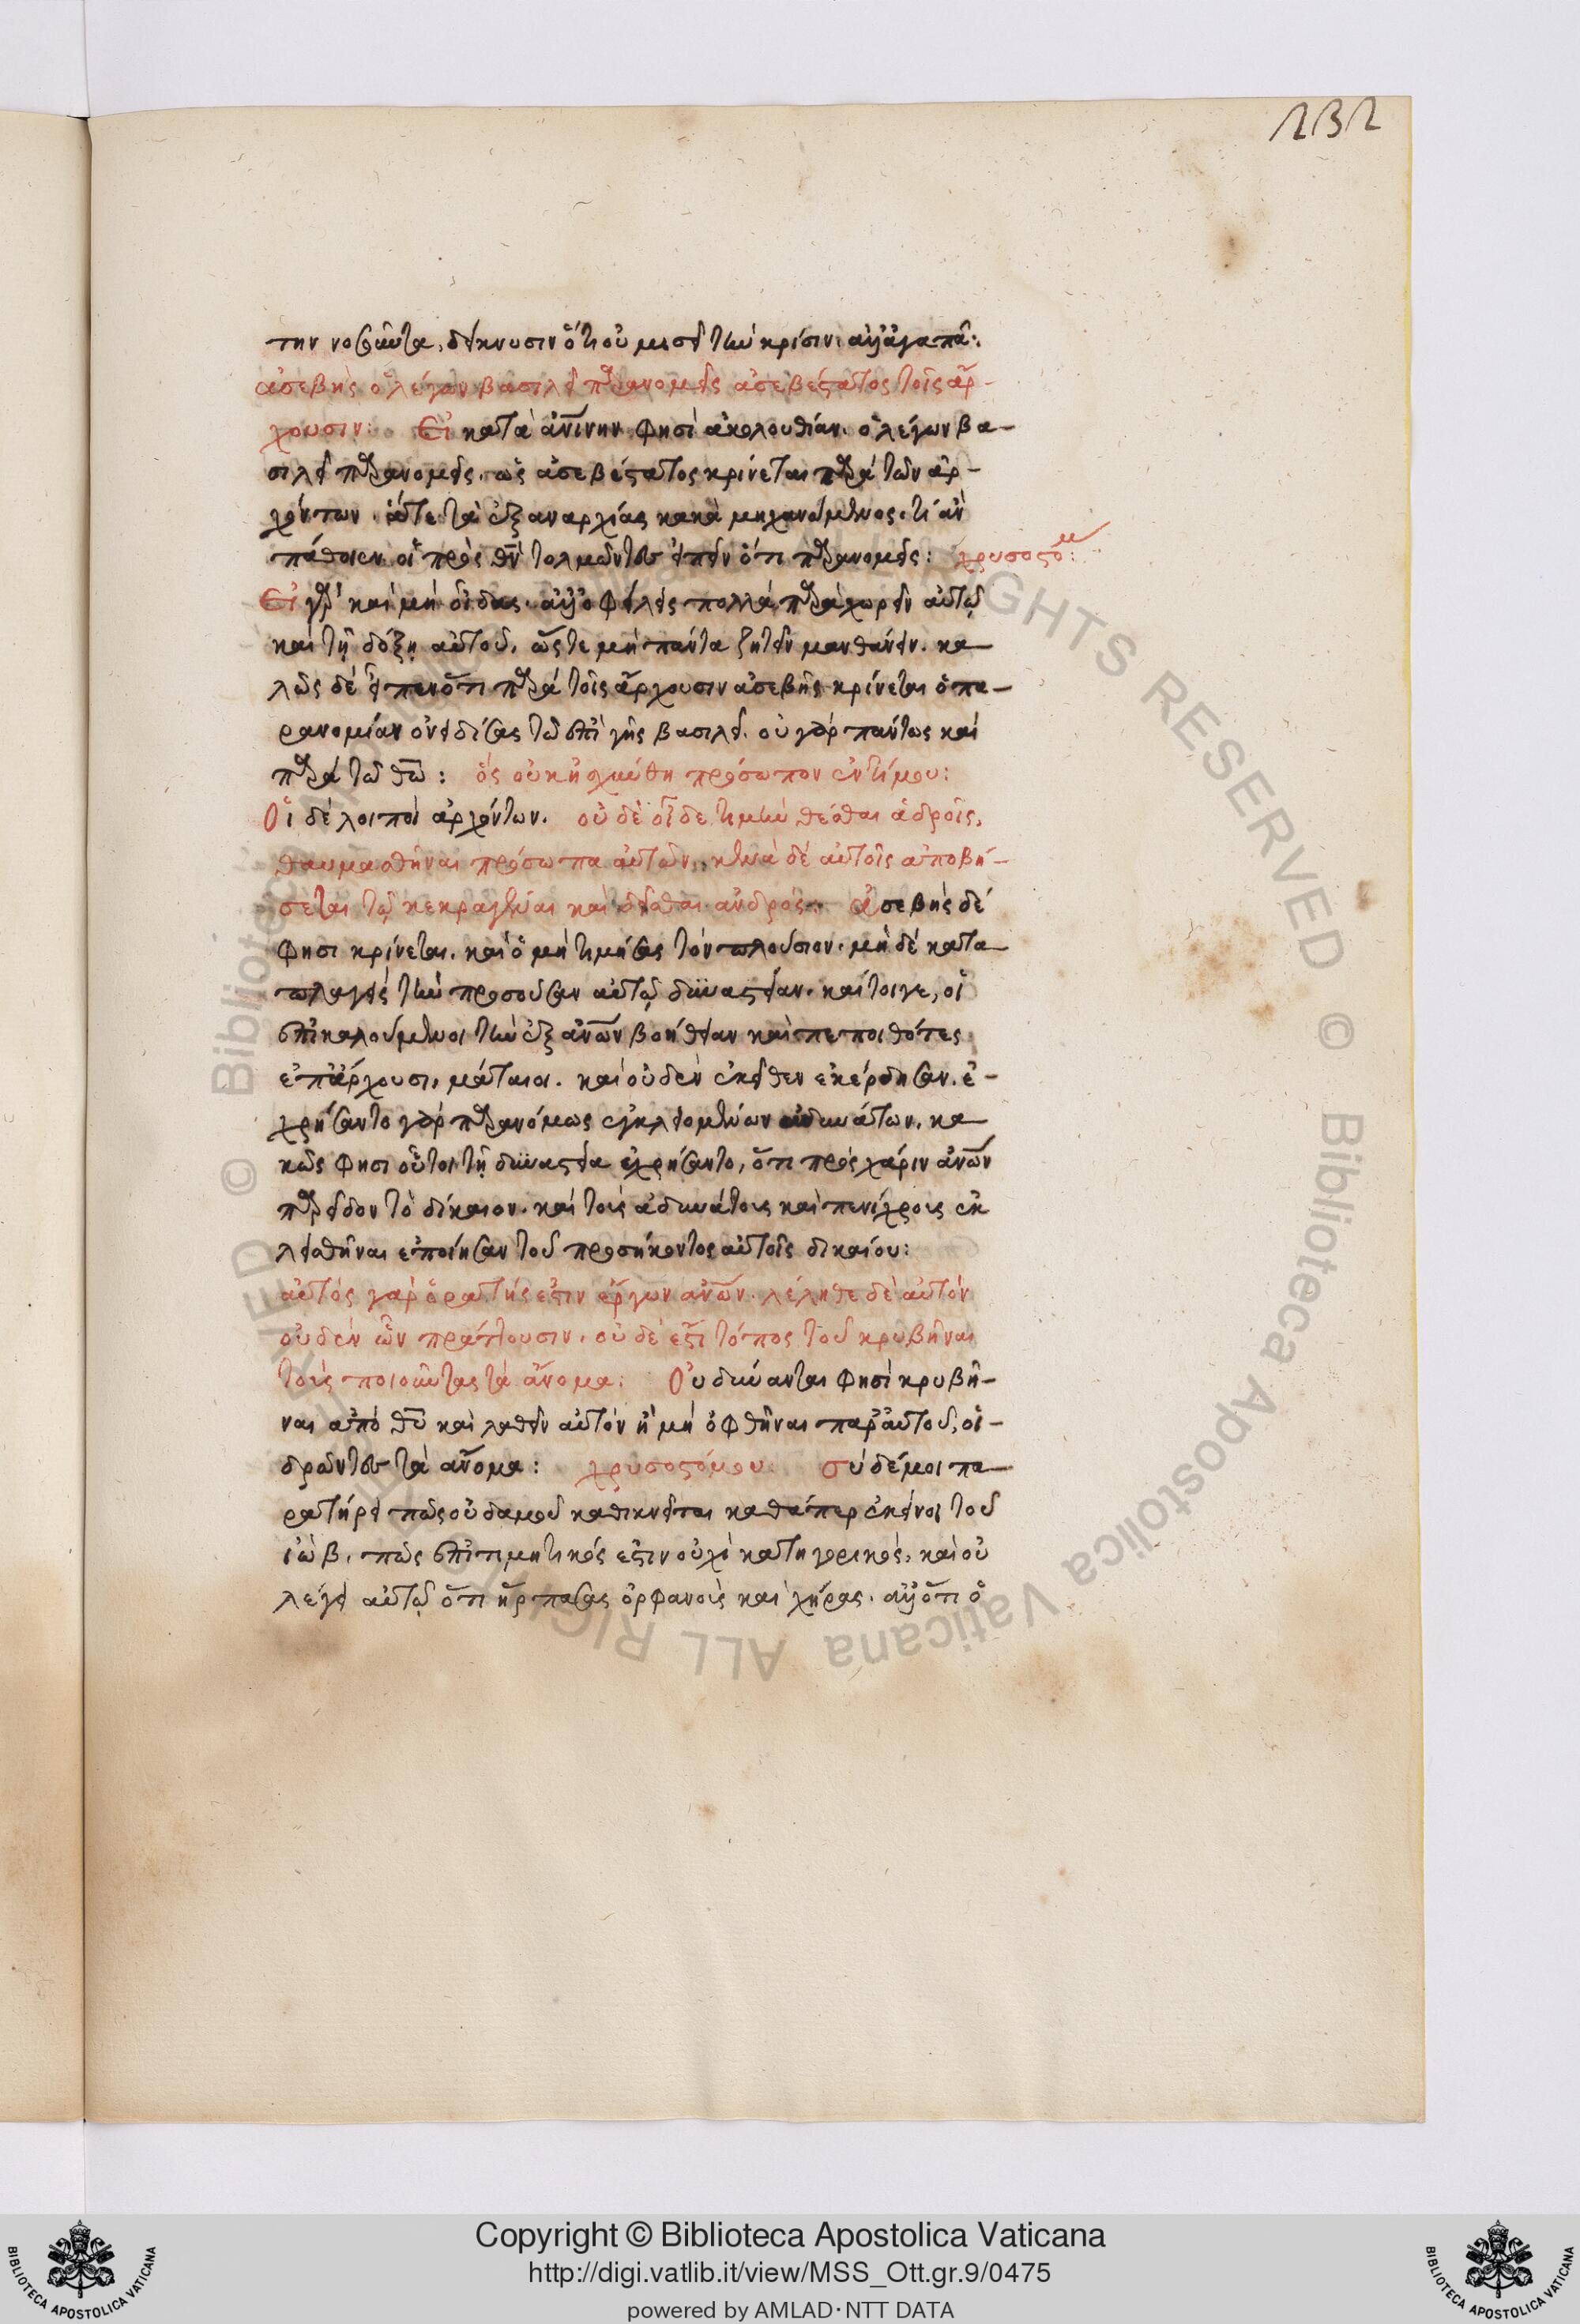 232
την νοσοῦντα, δείκνυσιν ὅτι οὐ μισεῖ τὴν κρίσιν. ἀλλ' ἀγαπᾶ:
ἀσεβὴς ὁ λέγων βασιλεῖ παρανομεῖς ἀσεβέστατος τοῖς ἄρ-
χουσιν: Εἰ κατὰ ἀνίνην φησὶ ἀκολουθίαν. ὁ λέγων βα-
σιλεῖ παρανομεῖς. ὡς ἀσεβέστατος κρίνεται παρὰ τῶν ἀρ-
χόντων. ἅτε τὰ ἐξ αναρχίας κακὰ μηχανώμενος. τί ἂν
πάθοιεν οἱ πρὸς θν τολμῶντες εἰπεῖν ὅτι παρανομεῖς: χρυσοστομ:
Εἰ γὰρ καὶ μὴ οἶδας. ἀλλ' ὀφείλεις πολλὰ παραχωρεῖν αὐτῶ
καὶ τῆ δόξη αὐτοῦ, ὥστε μὴ πάντα ζητεῖν μανθάνειν. κα
λῶς δὲ εἶπεν ὅτι παρὰ τοῖς ἄρχουσιν ἀσεβὴς κρίνεται ὁ πα-
ρανομίαν ὀνειδίσας τῶ ἐπὶ γῆς βασιλεῖ. οὐ γὰρ πάντως καὶ
παρὰ τῶ θω: ὃς οὐκ ἠσχύνθη πρόσωπον ἐντίμου:
Οἱ δὲ λοιποὶ ἀρχόντων. οὐδὲ οἶδε τιμὴν θέσθαι ἁδροῖς,
θαυμασθῆναι πρόσωπα αὐτῶν, κενὰ δὲ αὐτοῖς ἀποβή-
σεται τῶ κεκραγέναι καὶ δεῖσθαι ανδρός: ἀσεβὴς δέ
φησι κρίνεται. καὶ ὁ μὴ τιμήσας τὸν πλούσιον. μὴ δὲ κατα
πλαγεὶς τὴν προσοῦσαν αὐτῶ δυναστείαν. καίτοιγε, οἱ
ἐπικαλούμενοι τὴν ἐξ ανων βοήθειαν καὶ πεποιθότες
ἐπ' ἄρχουσι, μάταιοι. καὶ οὐδὲν ἐκεῖθεν ἐκέρδησαν. ἐ-
χρήσαντο γὰρ παρανόμως ἐκκλειομένων ἀδυνάτων. κα
κῶς φησι οὗτοι τῆ δυναστεία ἐχρήσαντο, ὅτι πρὸς χάριν ανων
παρεῖδον τὸ δίκαιον. καὶ τοὺς ἀδυνάτους καὶ πενίχρους ἐκ
λεισθῆναι ἐποίησαν τοῦ προσήκοντος αὐτοῖς δικαίου:
αὐτὸς γὰρ ὁρατής ἐστιν ἔργων ανων. λέληθε δὲ αὐτὸν
οὐδὲν ὧν πράττουσιν. οὐδὲ ἔστι τόπος τοῦ κρυβῆναι
τοὺς ποιοῦντας τὰ ἄνομα: Οὐ δύνανται φησὶ κρυβῆ-
ναι ἀπὸ θυ καὶ λαθεῖν αὐτὸν ἢ μὴ ὀφθῆναι παρ' αὐτοῦ, οἱ-
δρῶντες τὰ ἄνομα: χρυσοστόμου σὺ δέ μοι πα
ρατήρει πῶς οὐδαμοῦ καθικνεῖται καθάπερ ἐκεῖνοι τοῦ
ἰὼβ. πῶς ἐπιτιμητικός ἐστιν οὐχὶ κατηγορικὸς, καὶ οὐ
λέγει αὐτῶ ὅτι ἥρπασας ὀρφανοὺς καὶ χήρας. ἀλλ' ὅτι ὁ
© Biblioteca Apostolica Vaticana ALL RIGHTS RESERVED
Copyright © Biblioteca Apostolica Vaticana
http://digi.vatlib.it/view/MSS_Ott.gr.9/0475
powered by AMLAD · NTT DATA
BIBLIOTECA APOSTOLICA VATICANA
BIBLIOTECA APOSTOLICA VATICANA